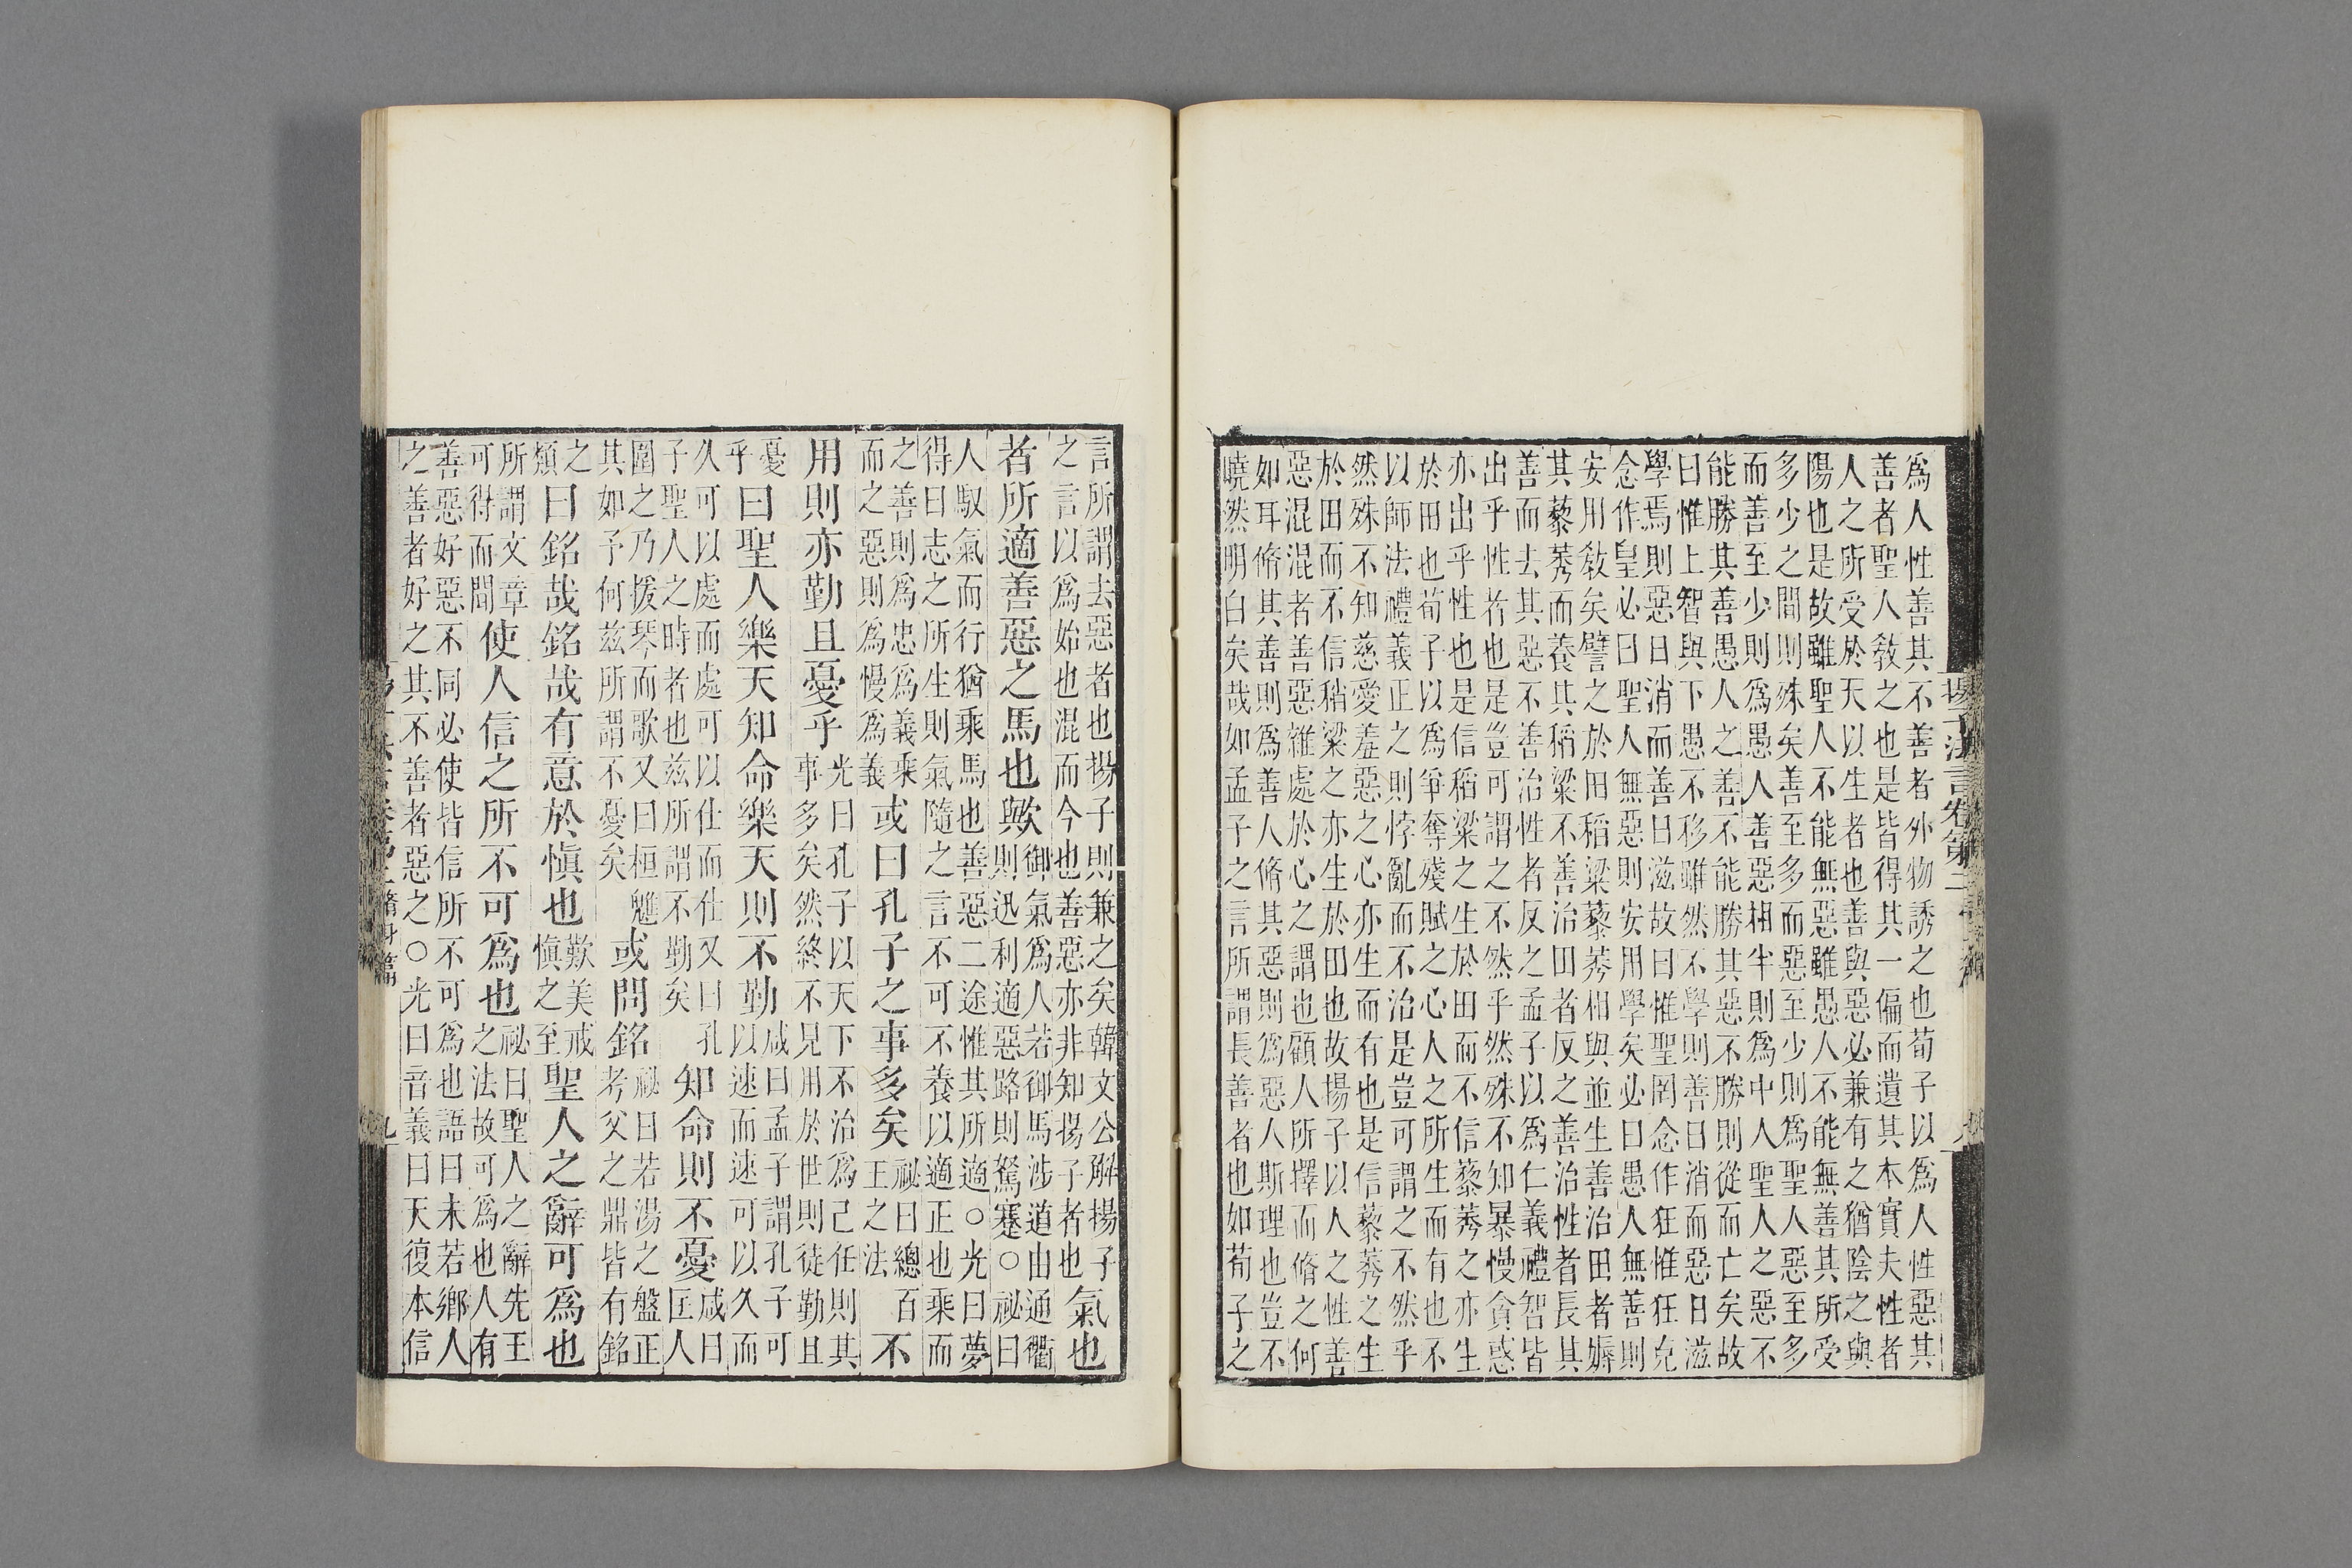 揚子法言卷第二
爲人性善其不善者外物誘之也荀子以爲人性惡其
善者聖人教之也是皆得其一偏而遺其本實夫性者
人之所受於天以生者也善與惡必兼有之猶陰之與
陽也是故雖聖人不能無惡雖愚人不能無善其所受
多少之間則殊矣善至多而惡至少則爲聖人惡至多
而善至少則爲愚人善惡相半則爲中人聖人之惡不
能勝其善愚人之善不能勝其惡不勝則從而亡矣故
曰惟上智與下愚不移雖然不學則善日消而惡日滋
學焉則惡日消而善日滋故曰惟聖罔念作狂惟狂克
念作聖必曰聖人無惡則安用學矣必曰愚人無善則
安用教矣譬之於田稻粱藜莠相與並生善治田者耨
其藜莠而養其稻粱不善治田者反之善治性者長其
善而去其惡不善治性者反之孟子以爲仁義禮智皆
出乎性者也是豈可謂之不然乎然殊不知暴慢貪惑
亦出乎性也是信稻粱之生於田而不信藜莠之亦生
於田也荀子以爲爭奪殘賊之心人之所生而有也不
以師法禮義正之則悖亂而不治是豈可謂之不然乎
然殊不知慈愛羞惡之心亦生而有也是信藜莠之生
於田而不信稻粱之亦生於田也故揚子以人之性善
惡混混者善惡雜處於心之謂也顧人所擇而脩之何
如耳脩其善則爲善人脩其惡則爲惡人斯理也豈不
曉然明白矣哉如孟子之言所謂長善者也如荀子之
言所謂去惡者也揚子則兼之矣韓文公解揚子之言以爲始也混而今也善惡亦非知揚子者也氣也
者所適善惡之馬也歟御氣爲人若御馬涉道由通衢則迅利適惡路則駑蹇○祕曰
人馭氣而行猶乘馬也善惡二途惟其所適○光曰夢得曰志之所生則氣隨之言不可不養以適正也乘而
之善則爲忠爲義乘而之惡則爲慢爲義或曰孔子之事多矣祕曰總百王之法不
用則亦勤且憂乎光曰孔子以天下不治爲己任則其事多矣然終不見用於世則徒勤且
憂乎曰聖人樂天知命樂天則不勤咸曰孟子謂孔子可以速而速可以久而
久可以處而處可以仕而仕又曰孔子聖人之時者也兹所謂不勤矣知命則不憂咸曰匡人
圍之乃援琴而歌又曰桓魋其如予何兹所謂不憂矣或問銘祕曰若湯之盤正考父之鼎皆有銘
之類曰銘哉銘哉有意於愼也歎美戒愼之至聖人之辭可爲也
所謂文章可得而聞使人信之所不可爲也祕曰聖人之辭先王之法故可爲也人有
善惡好惡不同必使皆信所不可爲也語曰未若鄉人之善者好之其不善者惡之○光曰音義曰天復本信
脩身篇
九